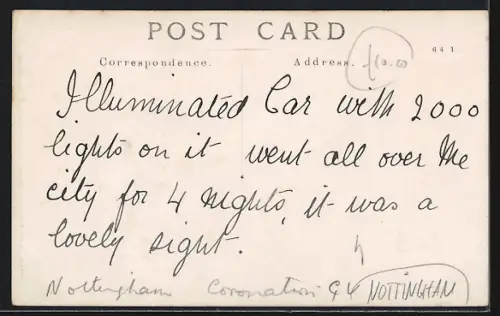 POST CARD
641
Correspondence. Address.
£10.00
Illuminated Car with 2000
lights on it went all over the
city for 4 nights, it was a
lovely sight.
Nottingham Coronation G V NOTTINGHAM